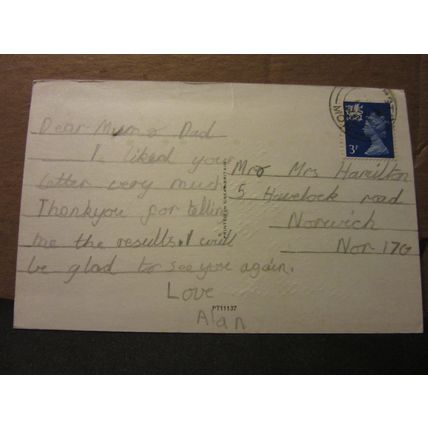 Dear Mum & Dad
I liked your
letter very much
Thankyou for telling
me the results. I will
be glad to see you again.
Love
Alan
Mr & Mrs Hamilton
5 Havelock road
Norwich
Nor 17G
3P
PT11137